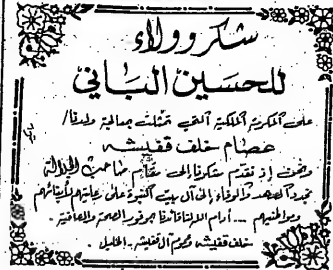 شكر وولاء
للحسين الباني
على المكرمة الملكية التي تمثلت بمعالجة ولدنا/
عصام خلف قفيشه
ونحن إذ نتقدم بشكرنا إلى مقام صاحب الجلالة
نجدد العهد والوفاء إلى آل بيت النبوة على رعايتهم لأبنائهم
ومواطنيهم .... أدام الله لنا قائدنا بموفور الصحة والعافية.
خلف قفيشه وعموم آل قفيشه - الخليل.